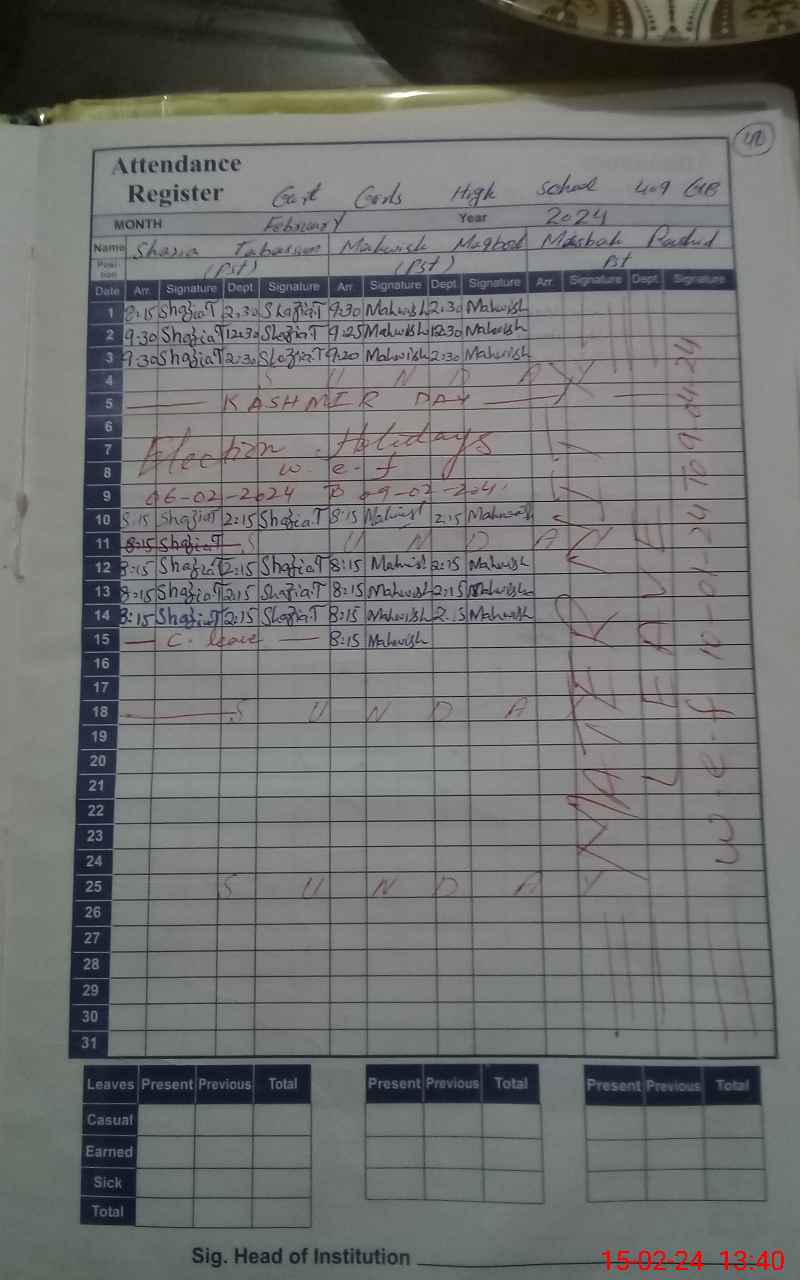 40
Attendance
Register Govt Girls High school 409 GB
MONTH February Year 2024
Name Shazia Tabassum Mahwish Maqbool Masbah Rashid
Position (Pst) (Pst) Pst
Date Arr. Signature Dept. Signature Arr. Signature Dept. Signature Arr. Signature Dept. Signature
1 8:15 ShaziaT 2:30 ShaziaT 9:30 Mahwish 2:30 Mahwish
2 9:30 ShaziaT 12:30 ShaziaT 9:25 Mahwish 12:30 Mahwish
3 9:30 ShaziaT 2:30 ShaziaT 9:20 Mahwish 2:30 Mahwish
4 S U N D A Y
5 KASHMIR DAY
6
7 Election Holidays
8 w.e.f
9 06-02-2024 To 09-02-2024
10 8:15 ShaziaT 2:15 ShaziaT 8:15 Mahwish 2:15 Mahwish
11 8:15 ShaziaT S U N D A Y
12 8:15 ShaziaT 2:15 ShaziaT 8:15 Mahwish 2:15 Mahwish
13 8:15 ShaziaT 2:15 ShaziaT 8:15 Mahwish 2:15 Mahwish
14 8:15 ShaziaT 2:15 ShaziaT 8:15 Mahwish 2:15 Mahwish
15 C. leave 8:15 Mahwish
16
17
18 S U N D A Y
19
20
21
22
23
24
25 S U N D A Y
26
27
28
29
30
31
MATERNITY
LEAVE
w.e.f 10-01-24 To 9-04-24
Leaves Present Previous Total Present Previous Total Present Previous Total
Casual
Earned
Sick
Total
Sig. Head of Institution
15-02-24 13:40